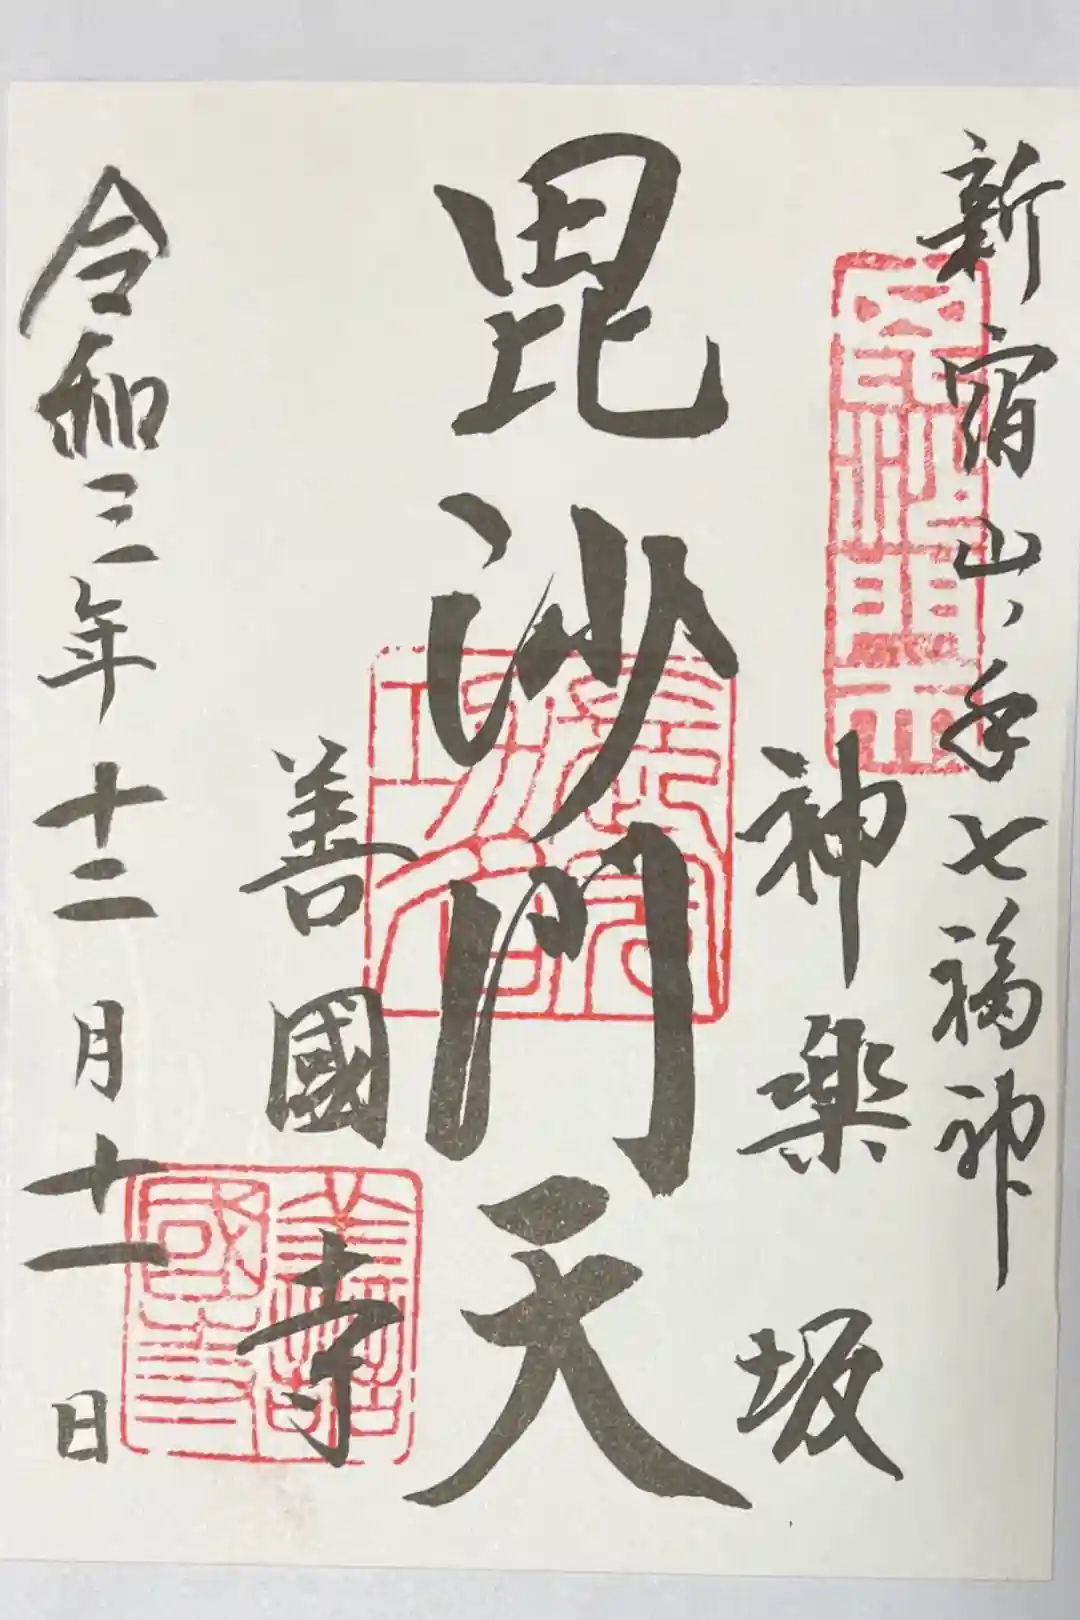 新宿山ノ手七福神
神楽坂
毘沙門天
善國寺
令和三年十二月十一日
善國寺